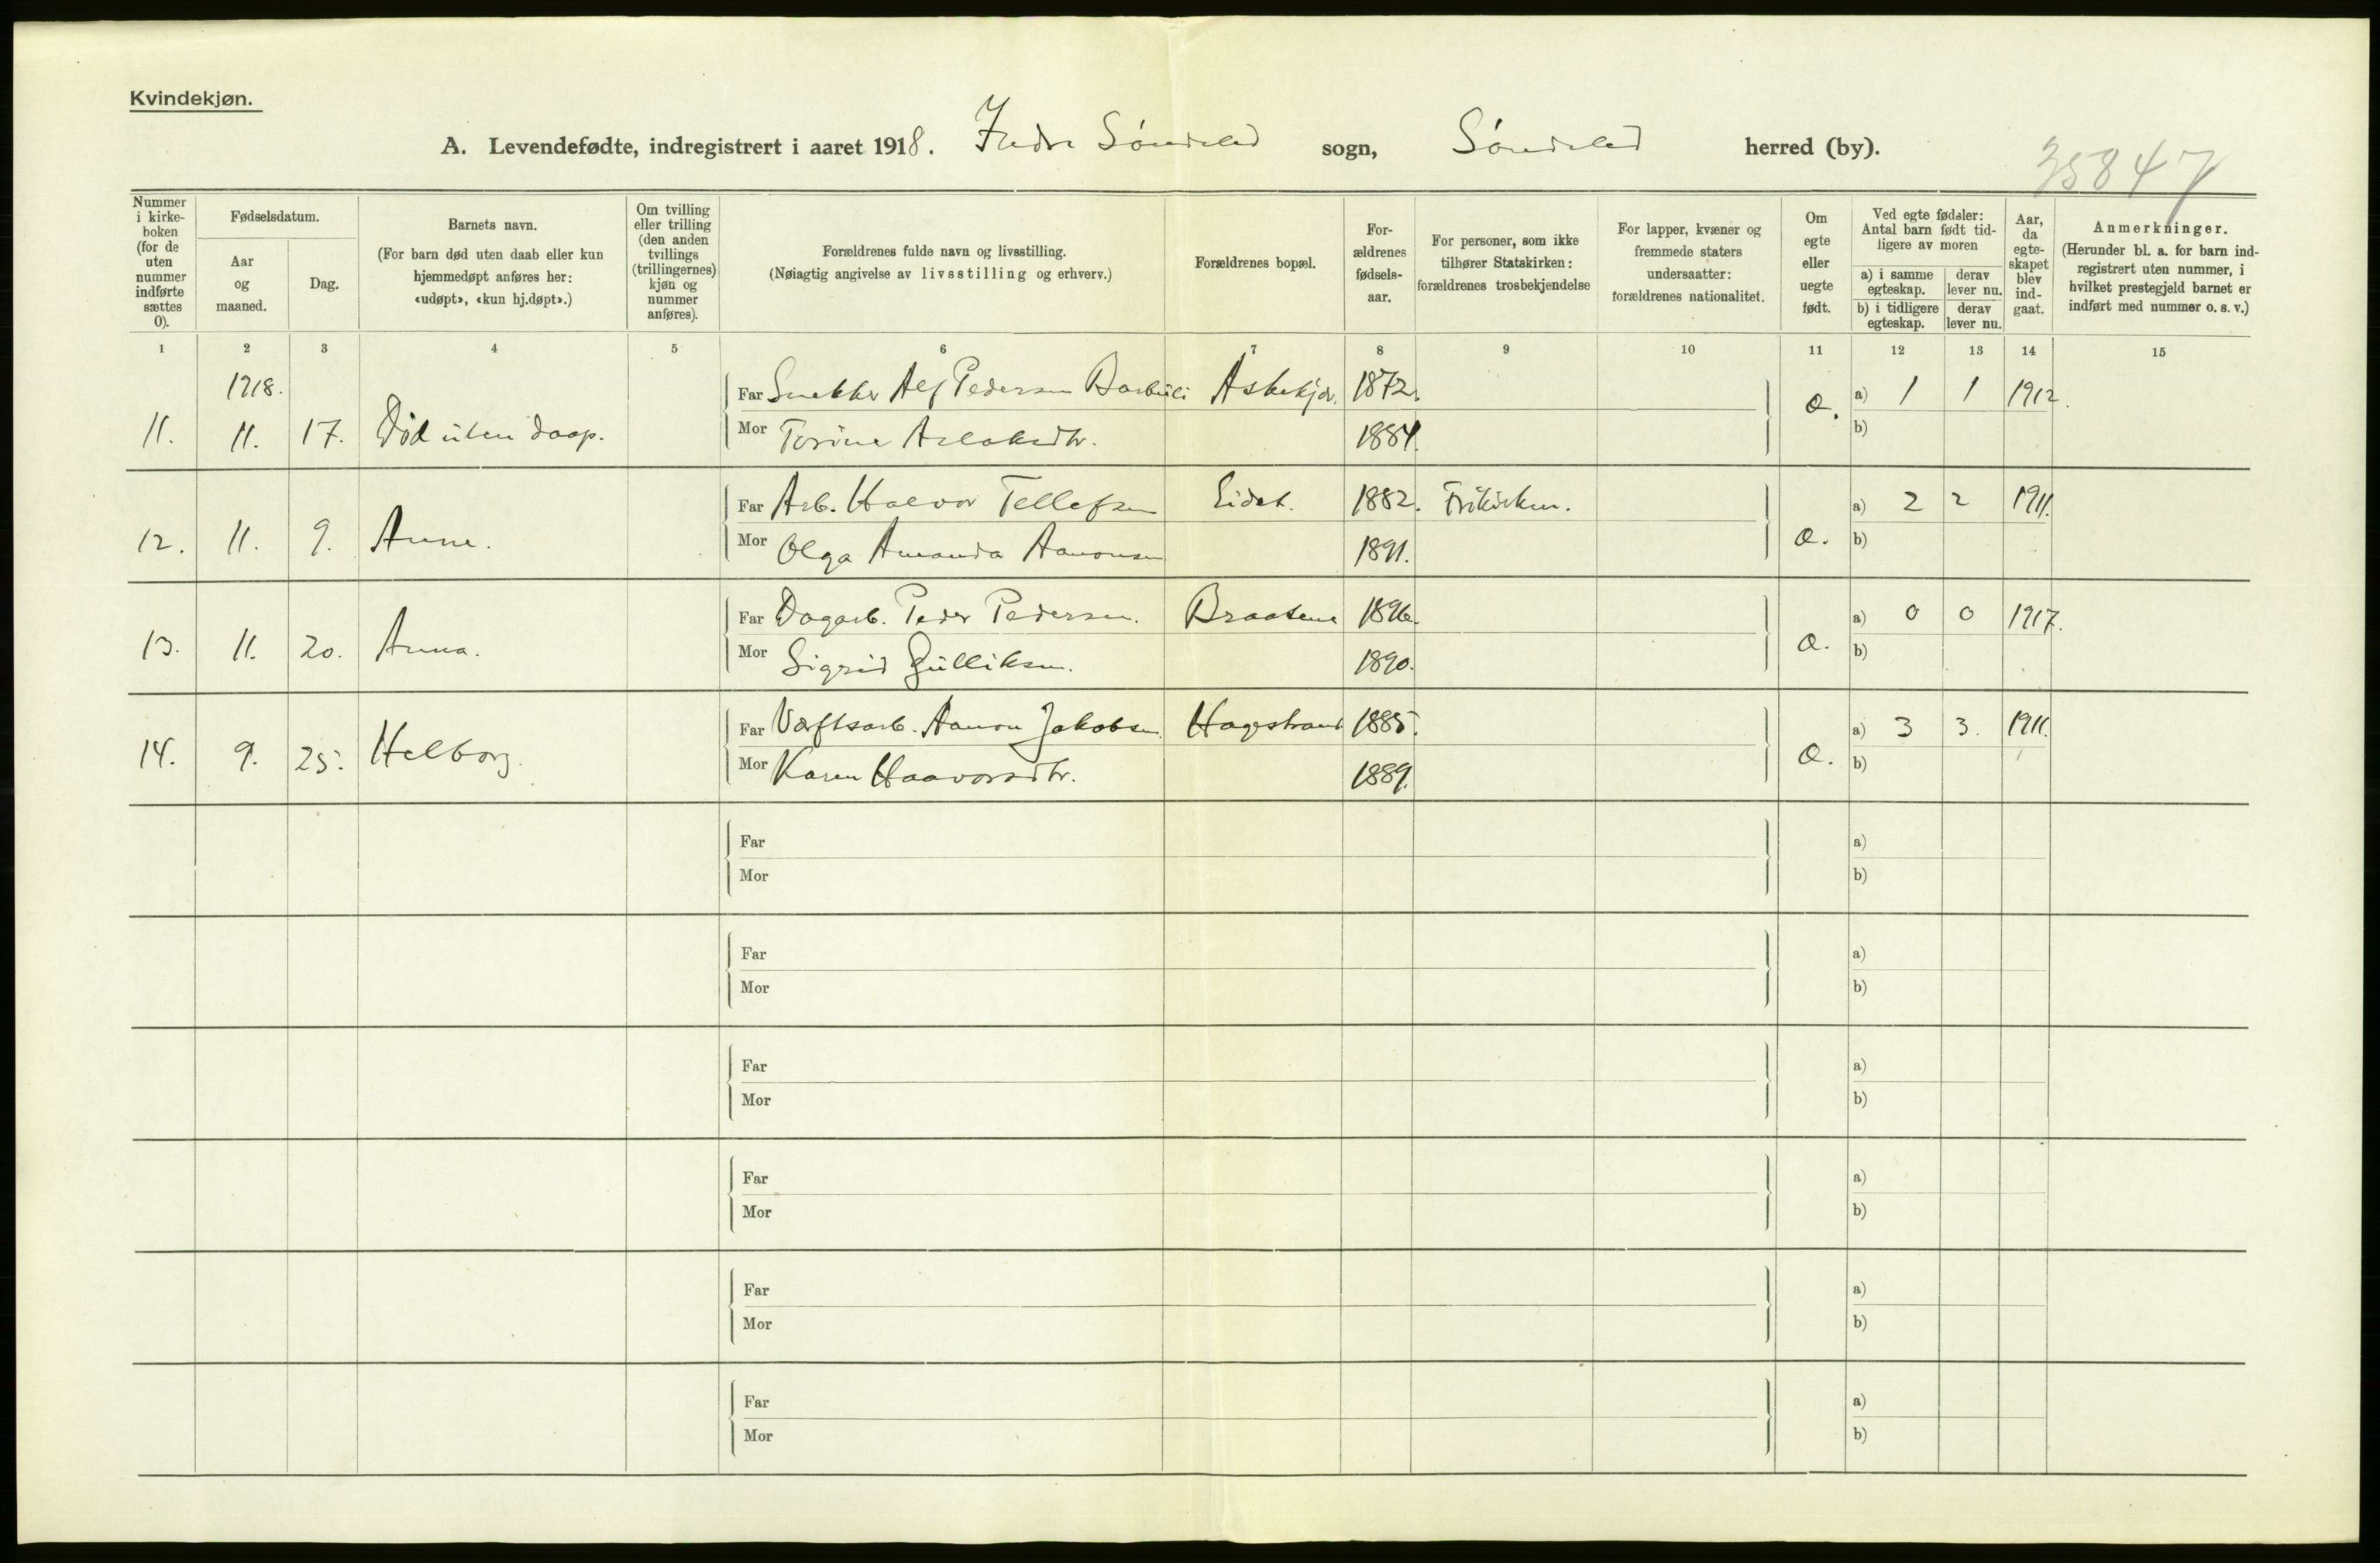 Kvindekjøn.
A. Levendefødte, indregistrert i aaret 1918. Indre Søndeled sogn, Søndeled herred (by).
35847
Nummer i kirke-boken (for de uten nummer indførte sættes 0).
Fødselsdatum.
Aar og maaned.
Dag.
Barnets navn.
(For barn død uten daab eller kun hjemmedøpt anføres her: «udøpt», «kun hj.døpt».)
Om tvilling eller trilling (den anden tvillings (trillingernes) kjøn og nummer anføres).
Forældrenes fulde navn og livsstilling.
(Nøiagtig angivelse av livsstilling og erhverv.)
Forældrenes bopæl.
For-ældrenes fødsels-aar.
For personer, som ikke tilhører Statskirken: forældrenes trosbekjendelse
For lapper, kvæner og fremmede staters undersaatter: forældrenes nationalitet.
Om egte eller uegte født.
Ved egte fødsler: Antal barn født tid-ligere av moren
a) i samme egteskap.
derav lever nu.
b) i tidligere egteskap.
derav lever nu.
Aar, da egte-skapet blev ind-gaat.
Anmerkninger.
(Herunder bl. a. for barn ind-registrert uten nummer, i hvilket prestegjeld barnet er indført med nummer o. s. v.)
1 2 3 4 5 6 7 8 9 10 11 12 13 14 15
1918.
Far Snekker Alf Pedersen Askekjær. 1872. a) 1 1 1912.
11. 11. 17. Død uten daap. Mor Torine Aslaksdtr. 1884. e. b)
Far Arb. Halvor Tellefsen Eidet. 1882. Frikirken. a) 2 2 1911.
12. 11. 9. Anne. Mor Olga Amanda Aanonsen 1891. e. b)
Far Dagarb. Peder Pedersen. Braatene 1896. a) 0 0 1917.
13. 11. 20. Anna. Mor Sigrid Gulliksen. 1890. e. b)
Far Værftsarb. Aanon Jakobsen. Hagestrand 1885. a) 3 3. 1911.
14. 9. 25. Helborg. Mor Karen Haavorsdtr. 1889. e. b)
Far a)
Mor b)
Far a)
Mor b)
Far a)
Mor b)
Far a)
Mor b)
Far a)
Mor b)
Far a)
Mor b)